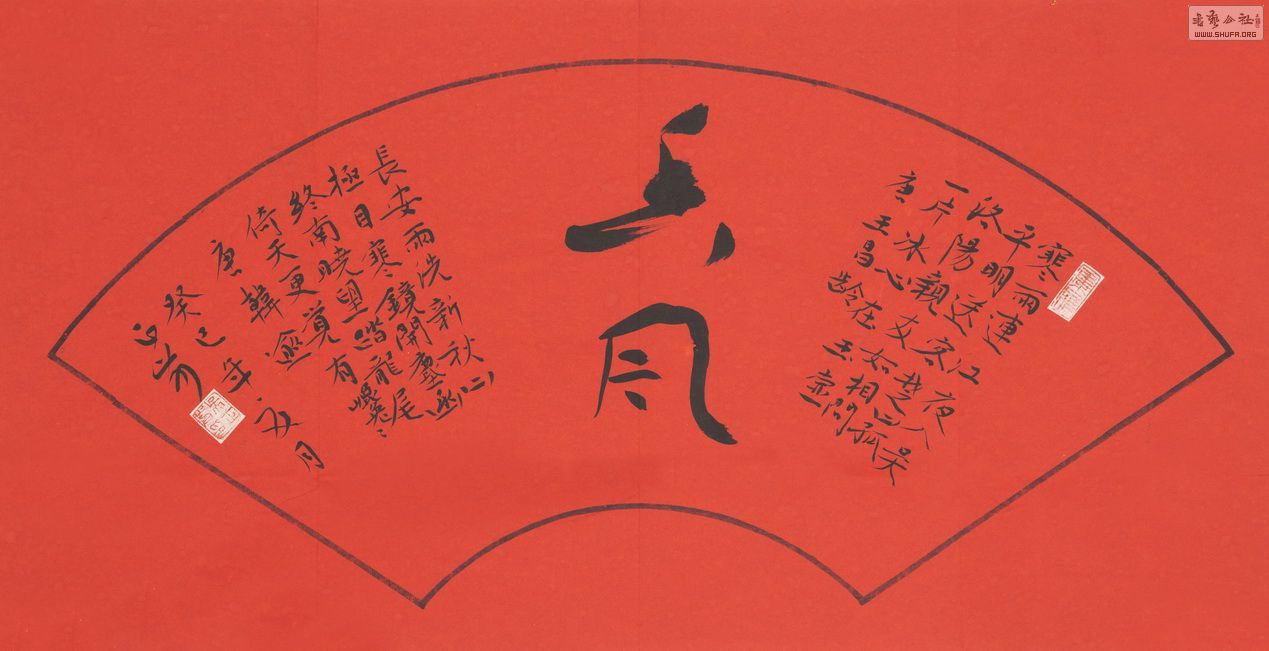 寒雨連江夜入吳
平明送客楚山孤
洛陽親友如相問
一片冰心在玉壺
唐 王昌齡
風
長安雨洗新秋出
極目寒鏡開塵函
終南曉望踏龍尾
倚天更覺青巉巉
唐 韓愈
癸巳年 月
書藝公社
WWW.SHUFA.ORG